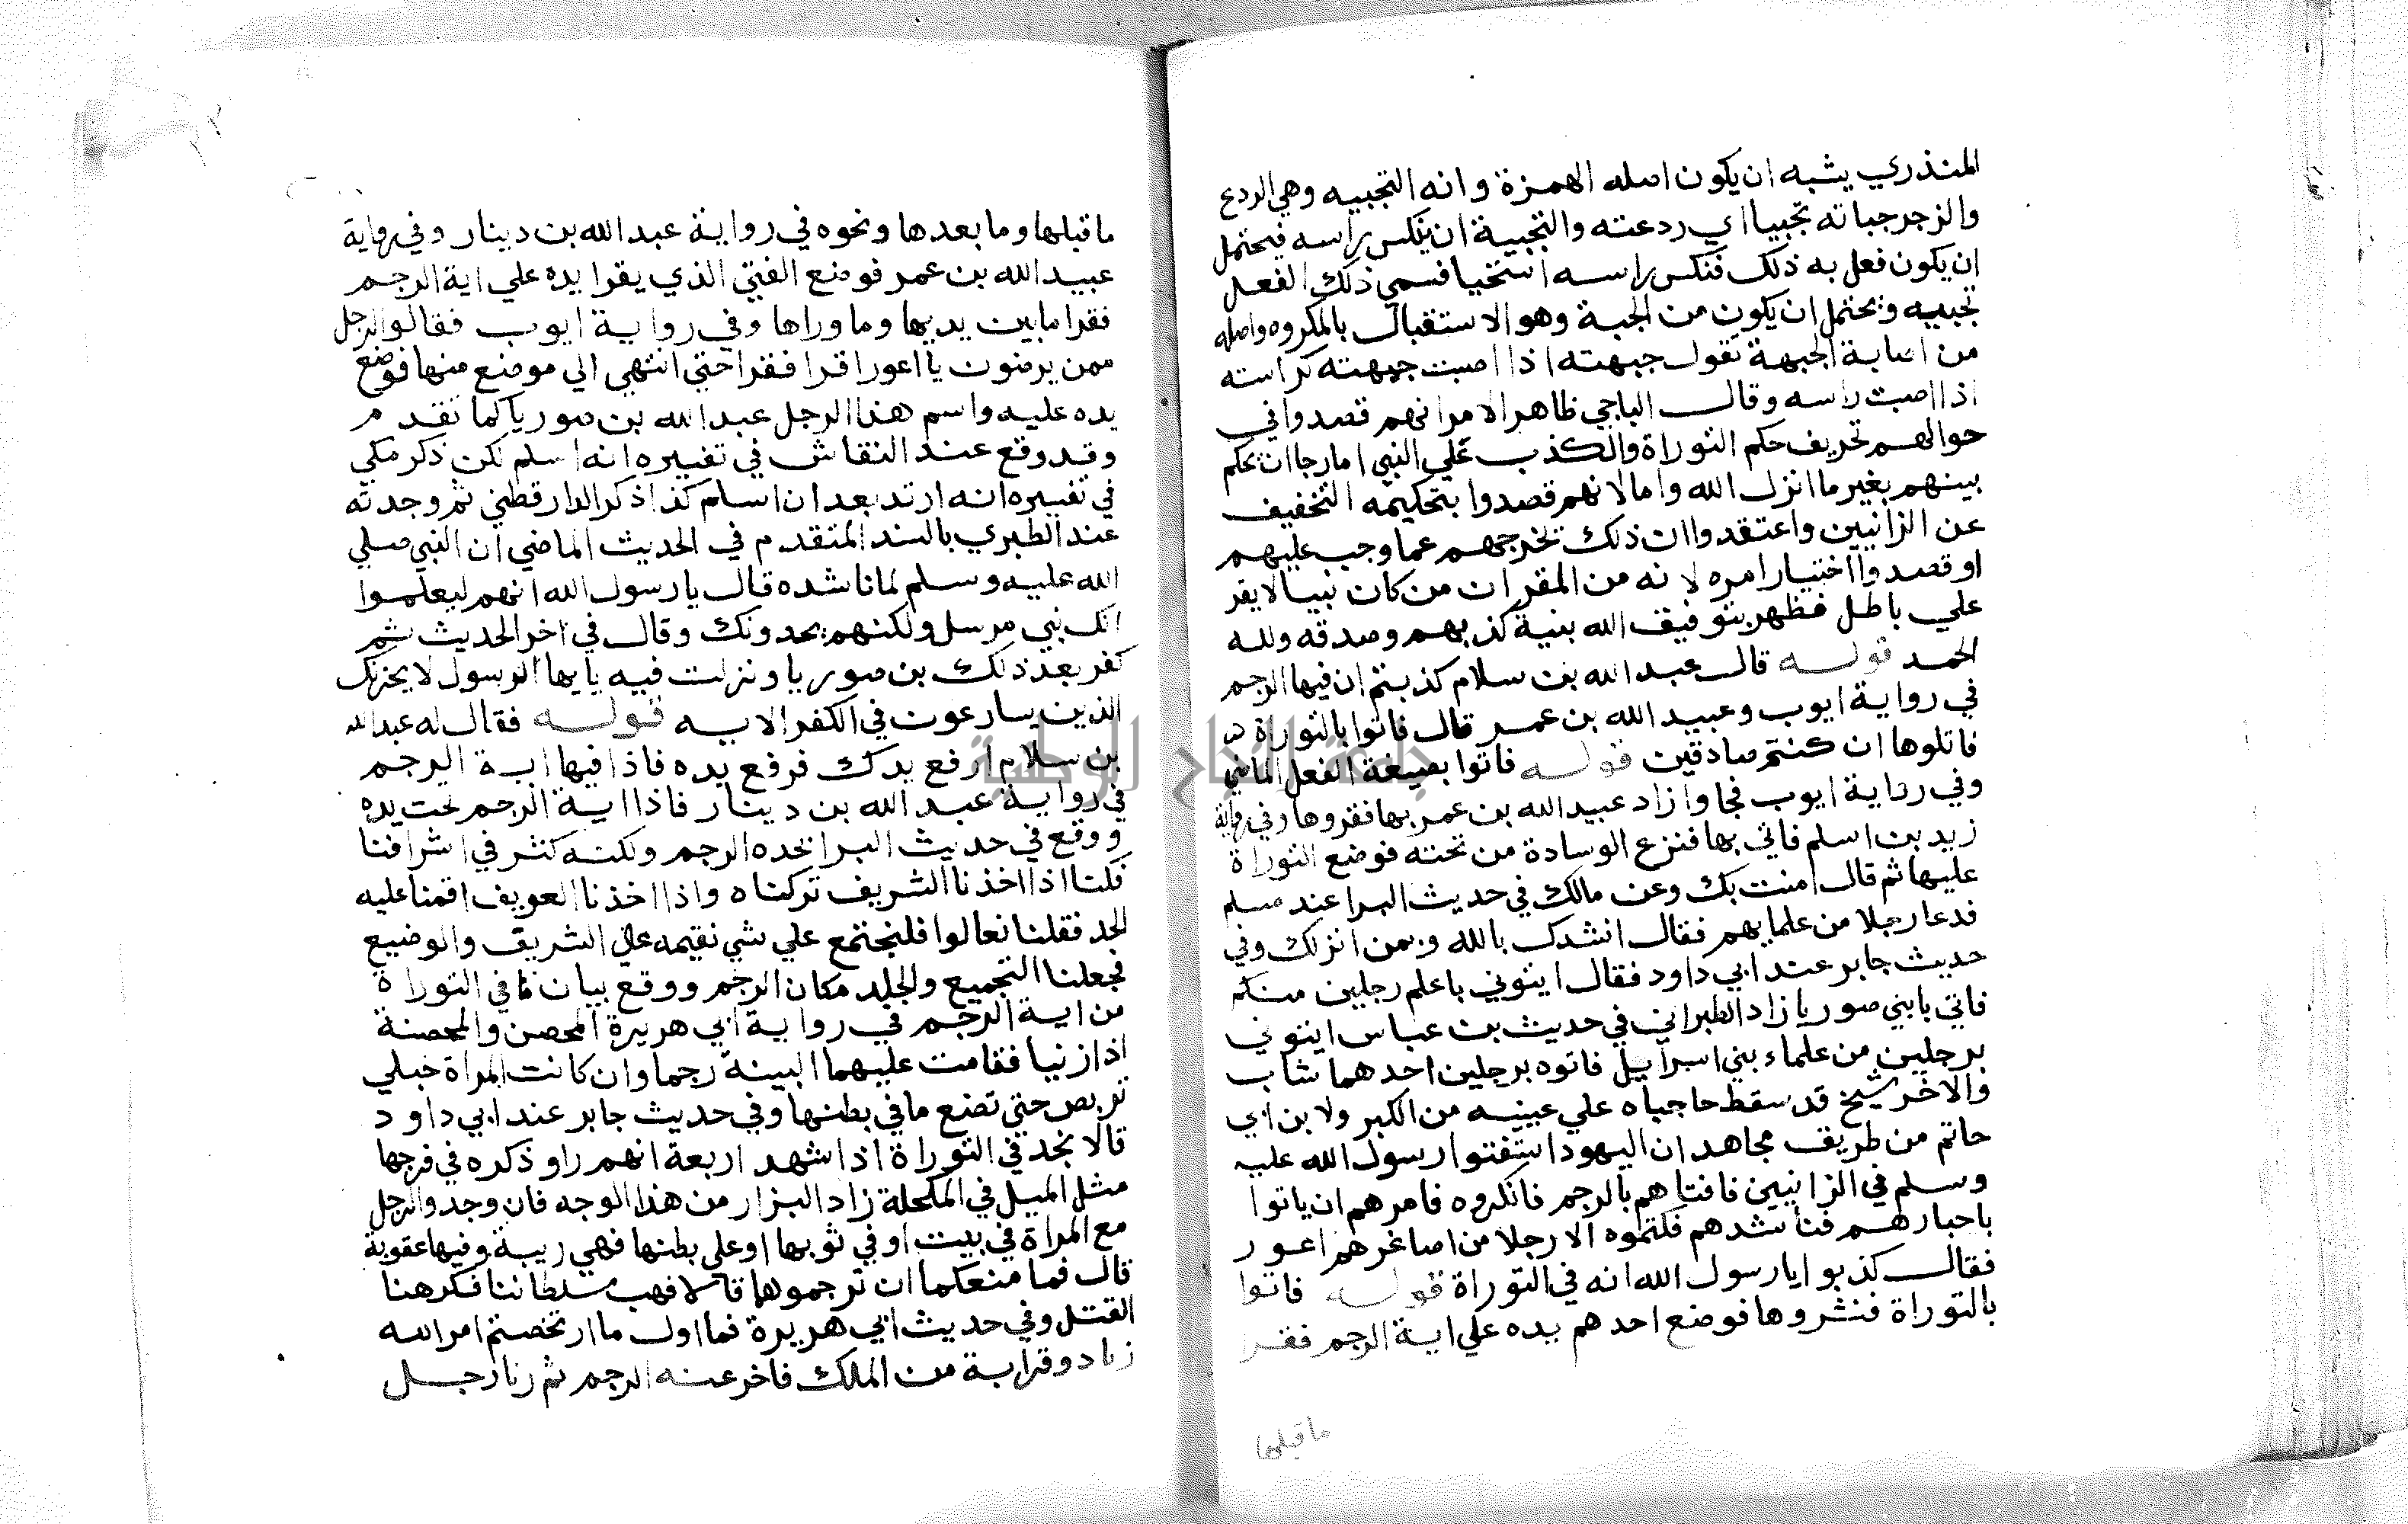 المنذري يشبه ان يكون اصله الهمزة وانه التجبيه وهي الردع
والزجر جباته تجبيا اي ردعته والتجبية ان ينكس راسه فيحتمل
ان يكون فعل به ذلك فنكس راسه استخيا فسمي ذلك الفعل
تجبيه ويحتمل ان يكون من الجبة وهو الاستقبال بالمكروه واصله
من اصابة الجبهة تقول جبهته اذا اصبت جبهته كراسته
اذا اصبت راسه وقال الباجي ظاهر الامر انهم قصدوا في
حوالهم تحريف حكم التوراة والكذب علي النبي اما رجا ان يحكم
بينهم بغير ما انزل الله واما لانهم قصدوا بتحكيمه التخفيف
عن الزانيين واعتقدوا ان ذلك تخرجهم عما وجب عليهم
او قصدوا اختيار امره لانه من المقر ان من كان نبيا لا يقر
علي باطل فظهر بتوفيق الله بنية كذبهم وصدقه ولله
الحمد قوله قال عبد الله بن سلام كذبتم ان فيها الرجم
في رواية ايوب وعبيد الله بن عمر قال فاتوا بالتوراة
فاتلوها ان كنتم صادقين قوله فاتوا بصيغة الفعل الماضي
وفي رواية ايوب فجاوا زاد عبيد الله بن عمر بها فقروها وفي رواية
زيد بن اسلم فاتي بها فنزع الوسادة من تحته فوضع التوراة
عليها ثم قال امنت بك وعن مالك في حديث البرا عند مسلم
فدعا رجلا من علمايهم فقال انشدك بالله وبمن انزلك وفي
حديث جابر عند ابي داود فقال ايتوني باعلم رجلين منكم
فاتي بابني صوريا زاد الطبراني في حديث بن عباس ايتوني
برجلين من علماء بني اسراييل فاتوه برجلين احدهما شاب
والاخر شيخ قد سقط حاجباه علي عينيه من الكبر ولابن ابي
حاتم من طريق مجاهد ان اليهود استفتوا رسول الله عليه
وسلم في الزانيين فافتاهم بالرجم فانكروه فامرهم ان ياتوا
باحبارهم فناشدهم فكتموه الا رجلا من اصاغرهم اعور
فقال كذبوا يا رسول الله انه في التوراة قوله فاتوا
بالتوراة فنشروها فوضع احدهم يده علي اية الرجم فقرا
ما قبلها
ما قبلها وما بعدها ونحوه في رواية عبد الله بن دينار وفي رواية
عبيد الله بن عمر فوضع الفتي الذي يقرا يده علي اية الرجم
فقرا ما بين يديها وما وراها وفي رواية ايوب فقالوا لرجل
ممن يرضون يا اعور اقرا فقرا حتي انتهي الي موضع منها فوضع
يده عليه واسم هذا الرجل عبد الله بن صوريا كما تقدم
وقد وقع عند النقاش في تفسيره انه اسلم لكن ذكر مكي
في تفسيره انه ارتد بعد ان اسلم كذا ذكر الدارقطني ثم وجدته
عند الطبري بالسند المتقدم في الحديث الماضي ان النبي صلي
الله عليه وسلم لما ناشده قال يا رسول الله انهم ليعلموا
انك نبي مرسل ولكنهم يحدونك وقال في اخر الحديث ثم
كفر بعد ذلك بن صوريا ونزلت فيه يايها الرسول لا يحزنك
الذين يسارعون في الكفر الايه قوله فقال له عبد الله
بن سلام ارفع يدك فرفع يده فاذا فيها اية الرجم
في رواية عبد الله بن دينار فاذا اية الرجم تحت يده
ووقع في حديث البرا نجده الرجم ولكنه كثر في اشرافنا
فكنا اذا اخذنا الشريف تركناه واذا اخذنا العويف اقمنا عليه
الحد فقلنا تعالوا فلنجتمع علي شي نقيمه علي الشريف والوضيع
فجعلنا التجميع والجلد مكان الرجم ووقع بيان ما في التوراة
من اية الرجم في رواية ابي هريرة المحصن والمحصنة
اذا زنيا فقامت عليهما البينة رجما وان كانت المراة حبلي
تربص حتي تضع ما في بطنها وفي حديث جابر عند ابي داود
قالا نجد في التوراة اذا شهد اربعة انهم راو ذكره في فرجها
مثل الميل في المكحلة زاد البزار من هذا الوجه فان وجدوا الرجل
مع المراة في بيت او في ثوبها او علي بطنها فهي ريبة وفيها عقوبة
قال فما منعكما ان ترجموهما قالا ذهب سلطاننا فكرهنا
القتل وفي حديث ابي هريرة فما اول ما ارتخصتم امر الله
زنا ذو قرابة من الملك فاخر عنه الرجم ثم زنا رجل
جامعة النجاح الوطنية